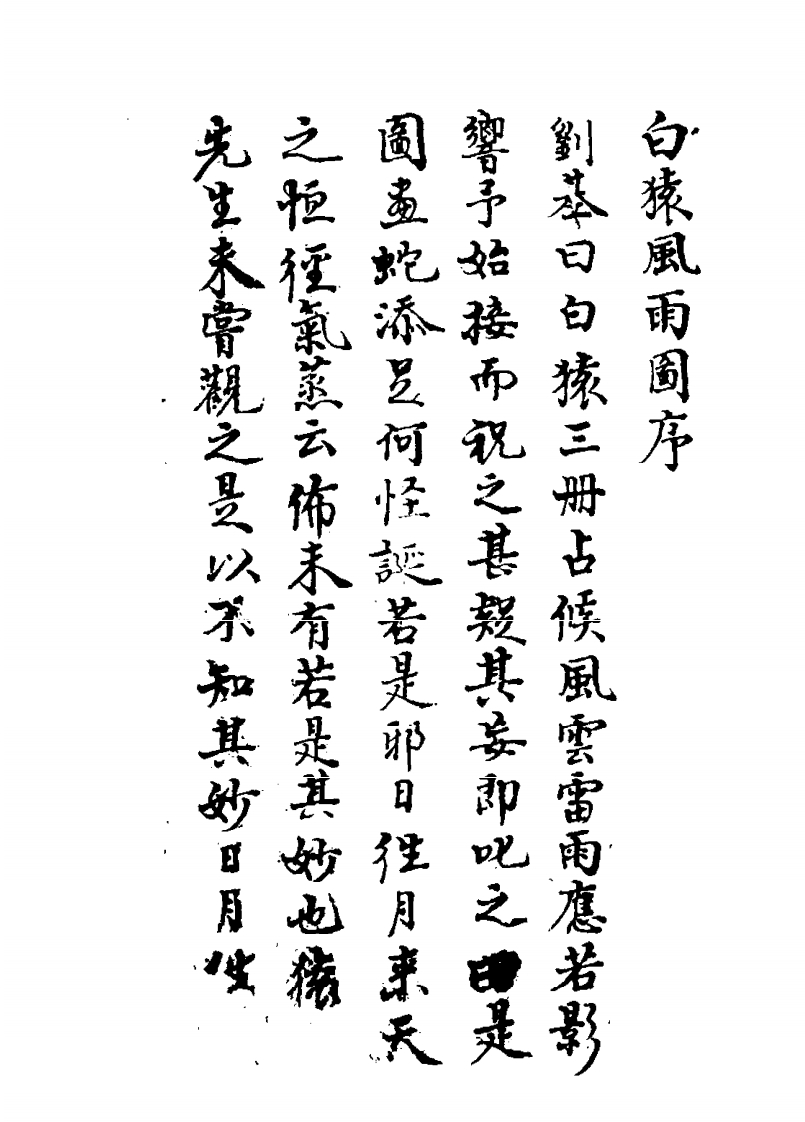 白猿風雨圖序
劉基曰白猿三册占候風雲雷雨應若影
響予始接而視之甚疑其妄即叱之曰是
圖畫蛇添足何怪誕若是耶日往月来天
之恒徑氣蒸云佈未有若是其妙也猿
先生未嘗觀之是以不知其妙日月往